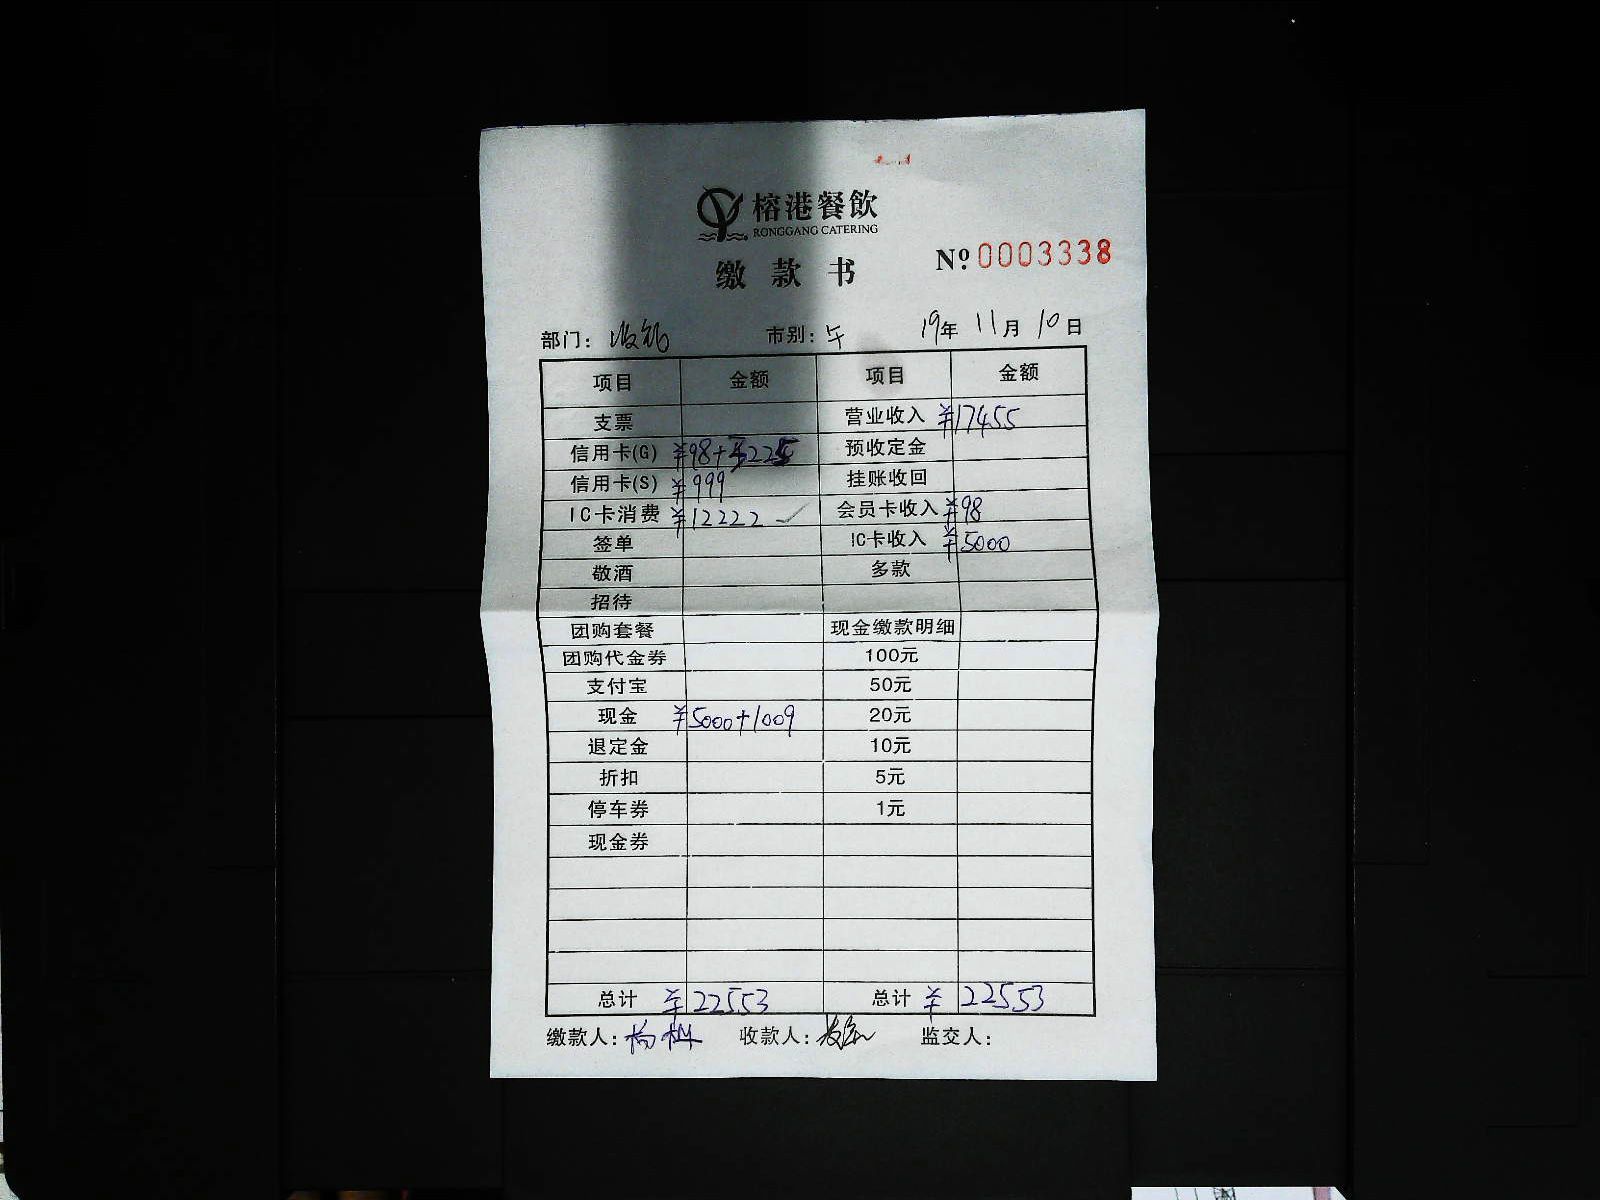 榕港餐飲
RONGGANG CATERING
缴款书
Nº 0003338
部门：收银 市别：午 19年 11月 10日
项目 金额 项目 金额
支票 营业收入 ¥17455
信用卡(G) ¥98+3225 预收定金
信用卡(S) ¥999 挂账收回
IC卡消费 ¥12222 ✓ 会员卡收入 ¥98
签单 IC卡收入 ¥5000
敬酒 多款
招待
团购套餐 现金缴款明细
团购代金券 100元
支付宝 50元
现金 ¥5000+1009 20元
退定金 10元
折扣 5元
停车券 1元
现金券
总计 ¥22553 总计 ¥22553
缴款人： 收款人： 监交人：